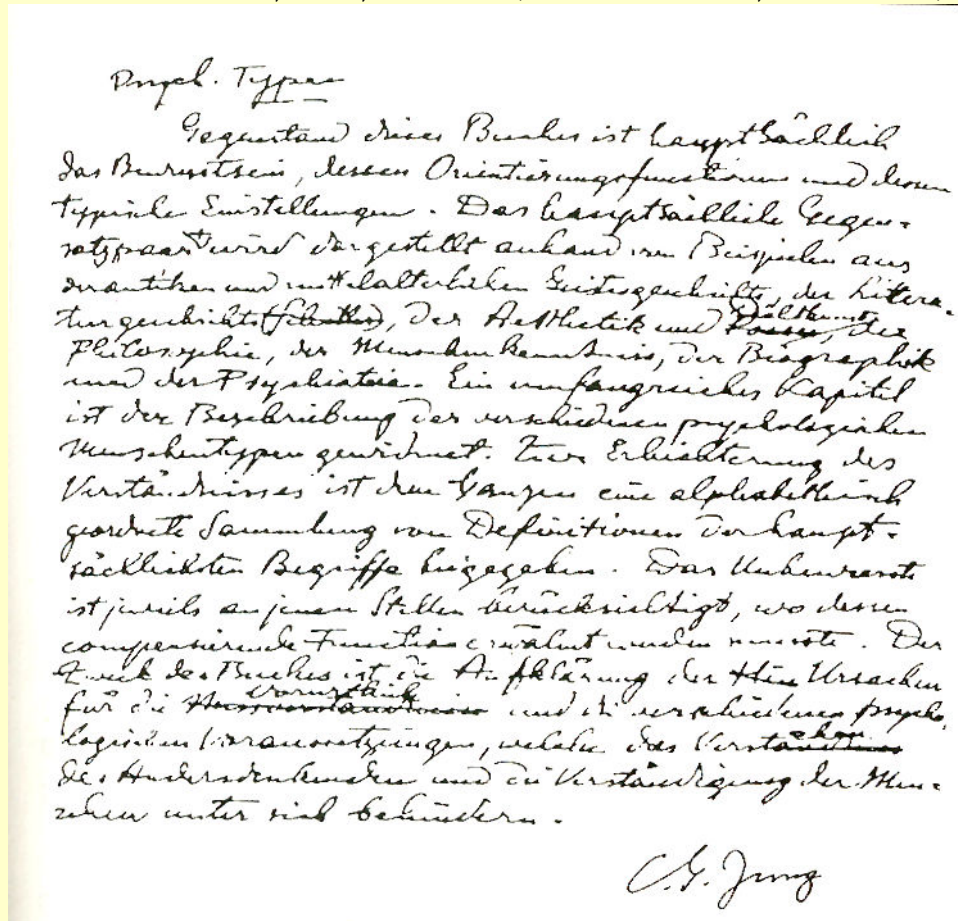 Psych. Typen
Gegenstand dieses Buches ist hauptsächlich
das Bewusstsein, dessen Orientierungsfunctionen und dessen
typische Einstellungen. Das hauptsächliche Gegen-
satzpaar wird dargestellt anhand von Beispielen aus
der antiken und mittelalterlichen Geistesgeschichte, der Littera-
turgeschichte (Schiller), der Aesthetik und Dichtkunst, der
Philosophie, der Menschenkenntniss, der Biographik
und der Psychiatrie. Ein umfangreiches Kapitel
ist der Beschreibung der verschiedenen psychologischen
Menschentypen gewidmet. Zur Erleichterung des
Verständnisses ist dem Ganzen eine alphabethisch
geordnete Sammlung von Definitionen der haupt-
sächlichsten Begriffe beigegeben. Das Unbewusste
ist jeweils an jenen Stellen berücksichtigt, wo dessen
compensierende Function erwähnt werden musste. Der
Zweck des Buches ist die Aufklärung der Ursachen
für die Vorurtheile und die verschiedenen psycho-
logischen Voraussetzungen, welche das Verstehen
des Andersdenkenden und die Verständigung der Men-
schen unter sich behindern.
C. G. Jung